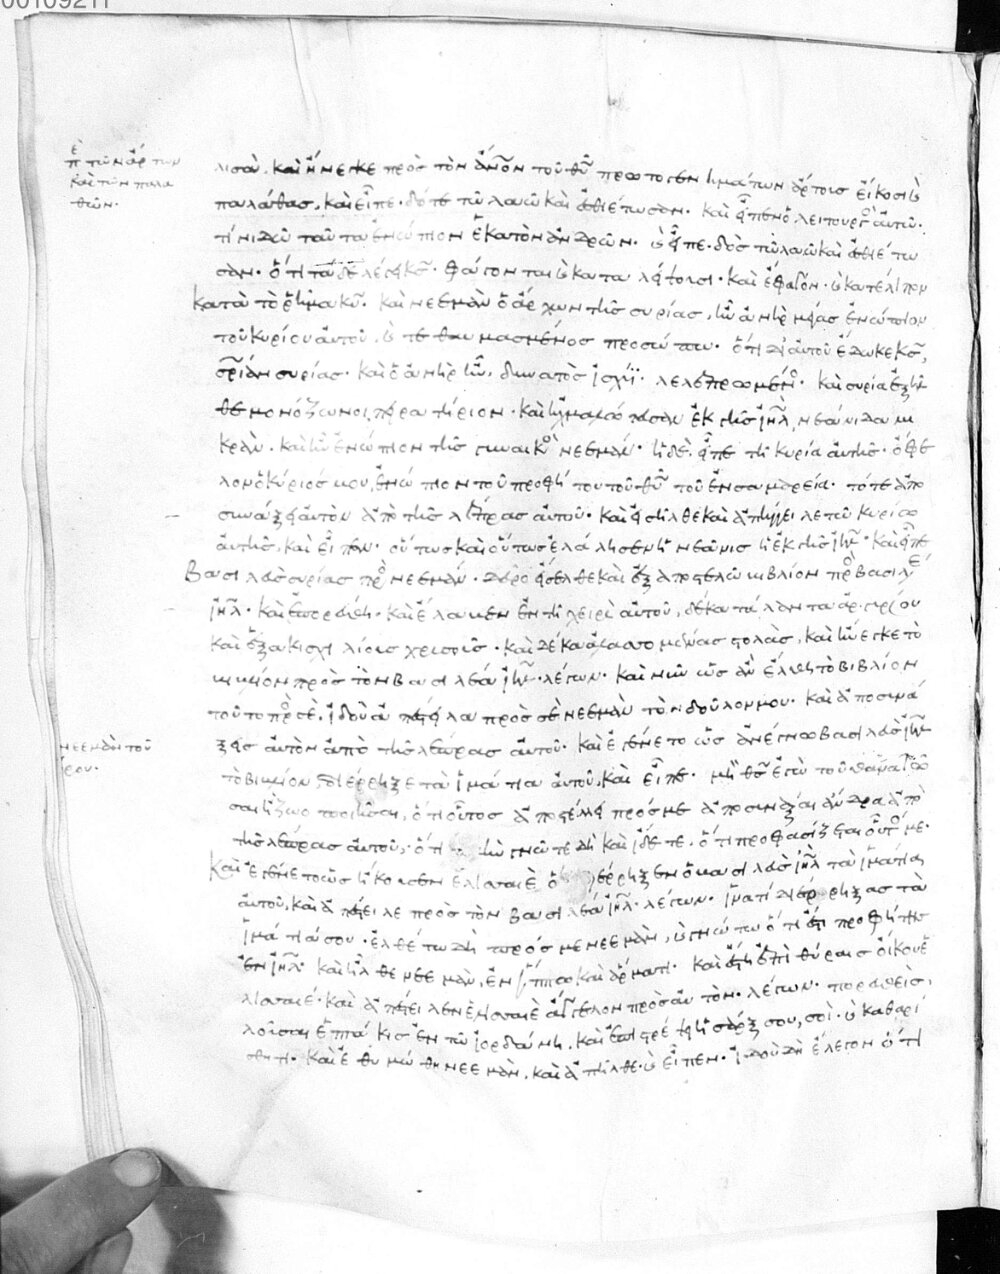 00109211
ὲπὶ τῶν ἄρτων
καὶ τῶν παλα
θῶν.
λισὰ. καὶ ἤνεγκε πρὸς τὸν ἄνον τοῦ θυ πρωτογενημάτων ἄρτους εἴκοσι καὶ
παλάθας. καὶ εἶπε. δότε τῶ λαῶ καὶ ἐσθιέτωσαν. καὶ εἶπεν ὁ λειτουργὸς αὐτοῦ.
τί δῶ ταῦτα ἐνώπιον ἑκατὸν ἀνδρῶν. καὶ εἶπε. δὸς τῶ λαῶ καὶ ἐσθιέτω
σαν. ὅτι τάδε λέγει κς. φάγονται καὶ καταλείψουσι. καὶ ἔφαγον. καὶ κατέλιπον
κατὰ τὸ ῥῆμα κυ. καὶ νεεμὰν ὁ ἄρχων τῆς συρίας, ἦν ἀνὴρ μέγας ἐνώπιον
τοῦ κυρίου αὐτοῦ, καὶ τεθαυμασμένος προσώπω. ὅτι δι' αὐτοῦ ἔδωκε κς,
σρίαν συρίας. καὶ ὁ ἀνὴρ ἦν, δυνατὸς ἰσχύϊ. λελεπρωμένος. καὶ συρία ἐξῆλ
θε μονόζωνοι πειρατήριον. καὶ ἠχμαλώτευσαν ἐκ γῆς ιηλ, νεάνιδα μι
κρὰν. καὶ ἦν ἐνώπιον τῆς γυναικὸς νεεμάν. ἡ δὲ εἶπε τῆ κυρία αὐτῆς. ὄφε
λον ὁ κύριός μου, ἐνώπιον τοῦ προφήτου τοῦ θυ τοῦ ἐν σαμαρεία. τότε ἀπο
συνάξει αὐτὸν ἀπὸ τῆς λέπρας αὐτοῦ. καὶ εἰσῆλθε καὶ ἀπήγγειλε τῶ κυρίω
αὐτῆς, καὶ εἶπεν. οὕτως καὶ οὕτως ἐλάλησεν ἡ νεᾶνις ἡ ἐκ γῆς ιηλ. καὶ εἶπε
βασιλεὺς συρίας πρὸς νεεμάν. δεῦρο εἴσελθε καὶ ἐξαποστελῶ βιβλίον πρὸς βασιλέα
ιηλ. καὶ ἐπορεύθη. καὶ ἔλαβεν ἐν τῆ χειρὶ αὐτοῦ, δέκα τάλαντα ἀργυρίου
καὶ ἑξακισχιλίους χρυσοῦς. καὶ δέκα ἀλλασσομένας στολὰς, καὶ ἤνεγκε τὸ
βιβλίον πρὸς τὸν βασιλέα ιηλ. λέγων. καὶ νῦν ὡς ἂν ἔλθη τὸ βιβλίον
τοῦτο πρὸς σέ. ἰδοὺ ἀπέστειλα πρὸς σὲ νεεμὰν τὸν δοῦλον μου. καὶ ἀποσυνά
νεεμὰν τοῦ
ξεις αὐτὸν ἀπὸ τῆς λέπρας αὐτοῦ. καὶ ἐγένετο ὡς ἀνέγνω βασιλεὺς ιηλ
τὸ βιβλίον, διέρρηξε τὰ ἱμάτια αὐτοῦ, καὶ εἶπε. μὴ θς ἐγὼ τοῦ θανατῶ
σαι ἢ ζωοποιῆσαι, ὅτι οὗτος ἀποστέλλει πρός με ἀποσυνάξαι ἄνδρα ἀπὸ
τῆς λέπρας αὐτοῦ, ὅτι πλὴν γνῶτε δὴ καὶ ἴδετε. ὅτι προφασίζεται οὗτός με.
καὶ ἐγένετο ὡς ἤκουσεν ἐλισσαιὲ ὅτι διέρρηξεν ὁ βασιλεὺς ιηλ τὰ ἱμάτια
αὐτοῦ, καὶ ἀπέστειλε πρὸς τὸν βασιλέα ιηλ. λέγων. ἵνα τί διέρρηξας τὰ
ἱμάτιά σου. ἐλθέτω δὴ πρός με νεεμὰν, καὶ γνώτω ὅτι ἔστι προφήτης
ἐν ιηλ. καὶ ἦλθε νεεμὰν, ἐν ἵππω καὶ ἅρματι. καὶ ἔστη ἐπὶ θύραις οἴκου ἐ
λισσαιέ. καὶ ἀπέστειλεν ἐλισσαιὲ ἄγγελον πρὸς αὐτὸν. λέγων. πορευθεὶς,
λοῦσαι ἑπτάκις ἐν τῶ ἰορδάνη. καὶ ἐπιστρέψει ἡ σάρξ σου, σοί. καὶ καθαρί
σθητι. καὶ ἐθυμώθη νεεμὰν, καὶ ἀπῆλθε. καὶ εἶπεν. ἰδοὺ δὴ ἔλεγον ὅτι